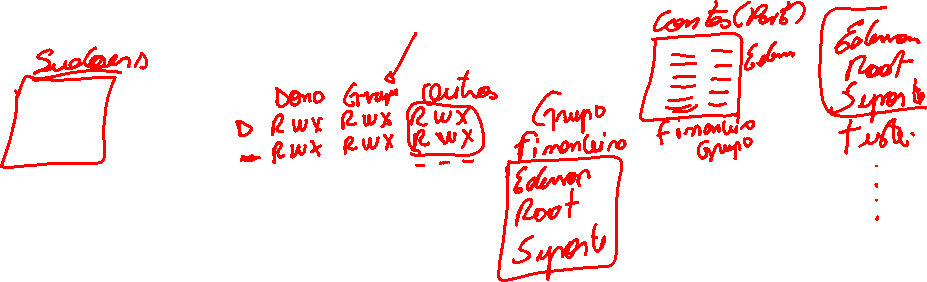 Sudoers
Dono Grupo Outros
D RWX RWX RWX
- RWX RWX RWX
- - -
Grupo
Financeiro
Ederson
Root
Suporte
Contas (Pasta)
Financeiro
Grupo
Ederson
Root
Suporte